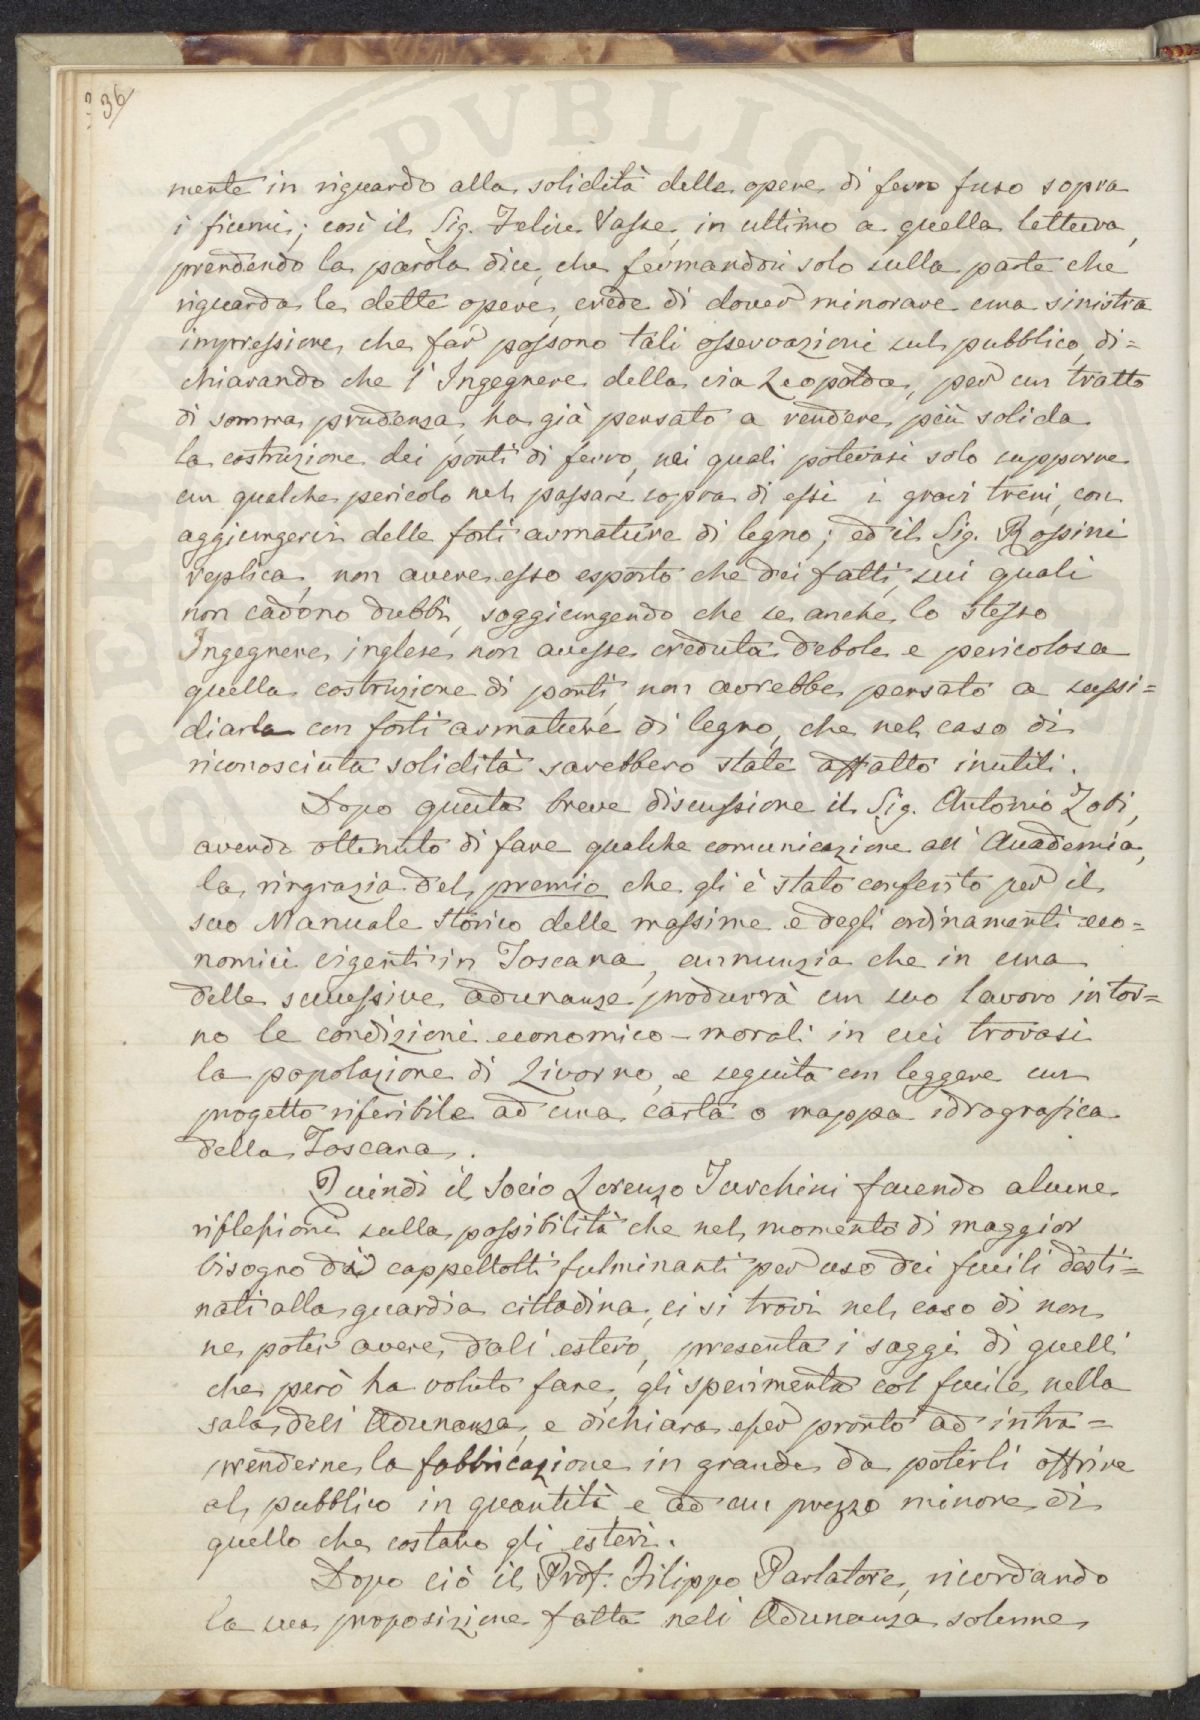 36
mente in riguardo alla solidità delle opere di ferro fuso sopra
i fiumi; così il Sig. Felice Vasse, in ultimo a quella lettura,
prendendo la parola dice, che fermandosi solo sulla parte che
riguarda le dette opere, crede di dover minorare una sinistra
impressione, che far possono tali osservazioni sul pubblico, di=
chiarando che l'Ingegnere della via Leopolda, per un tratto
di somma prudenza, ha già pensato a rendere più solida
la costruzione dei ponti di ferro, nei quali potevasi solo supporre
un qualche pericolo nel passare sopra di essi i gravi treni, con
aggiungervi delle forti armature di legno; ed il Sig. Rossini
replica, non avere esso esposto che dei fatti, sui quali
non cadono dubbi, soggiungendo che se anche lo stesso
Ingegnere inglese non avesse creduta debole e pericolosa
quella costruzione di ponti, non avrebbe pensato a sussi=
diarla con forti armature di legno, che nel caso di
riconosciuta solidità sarebbero state affatto inutili.
Dopo questa breve discussione il Sig. Antonio Zobi,
avendo ottenuto di fare qualche comunicazione all'Accademia,
la ringrazia del premio che gli è stato conferito per il
suo Manuale storico delle massime e degli ordinamenti eco=
nomici vigenti in Toscana, annunzia che in una
delle successive adunanze produrrà un suo lavoro intor=
no le condizioni economico-morali in cui trovasi
la popolazione di Livorno, e seguita con leggere un
progetto riferibile ad una carta o mappa idrografica
della Toscana.
Quindi il Socio Lorenzo Turchini facendo alcune
riflessioni sulla possibilità che nel momento di maggior
bisogno dei cappellotti fulminanti per uso dei fucili desti=
nati alla guardia cittadina, ci si trovi nel caso di non
ne poter avere dall'estero, presenta i saggi di quelli
che però ha voluto fare, gli sperimenta col fucile nella
sala dell'Adunanza, e dichiara esser pronto ad intra=
prenderne la fabbricazione in grande da poterli offrire
al pubblico in quantità e ad un prezzo minore di
quello che costano gli esteri.
Dopo ciò il Prof. Filippo Parlatore, ricordando
la sua proposizione fatta nell'Adunanza solenne